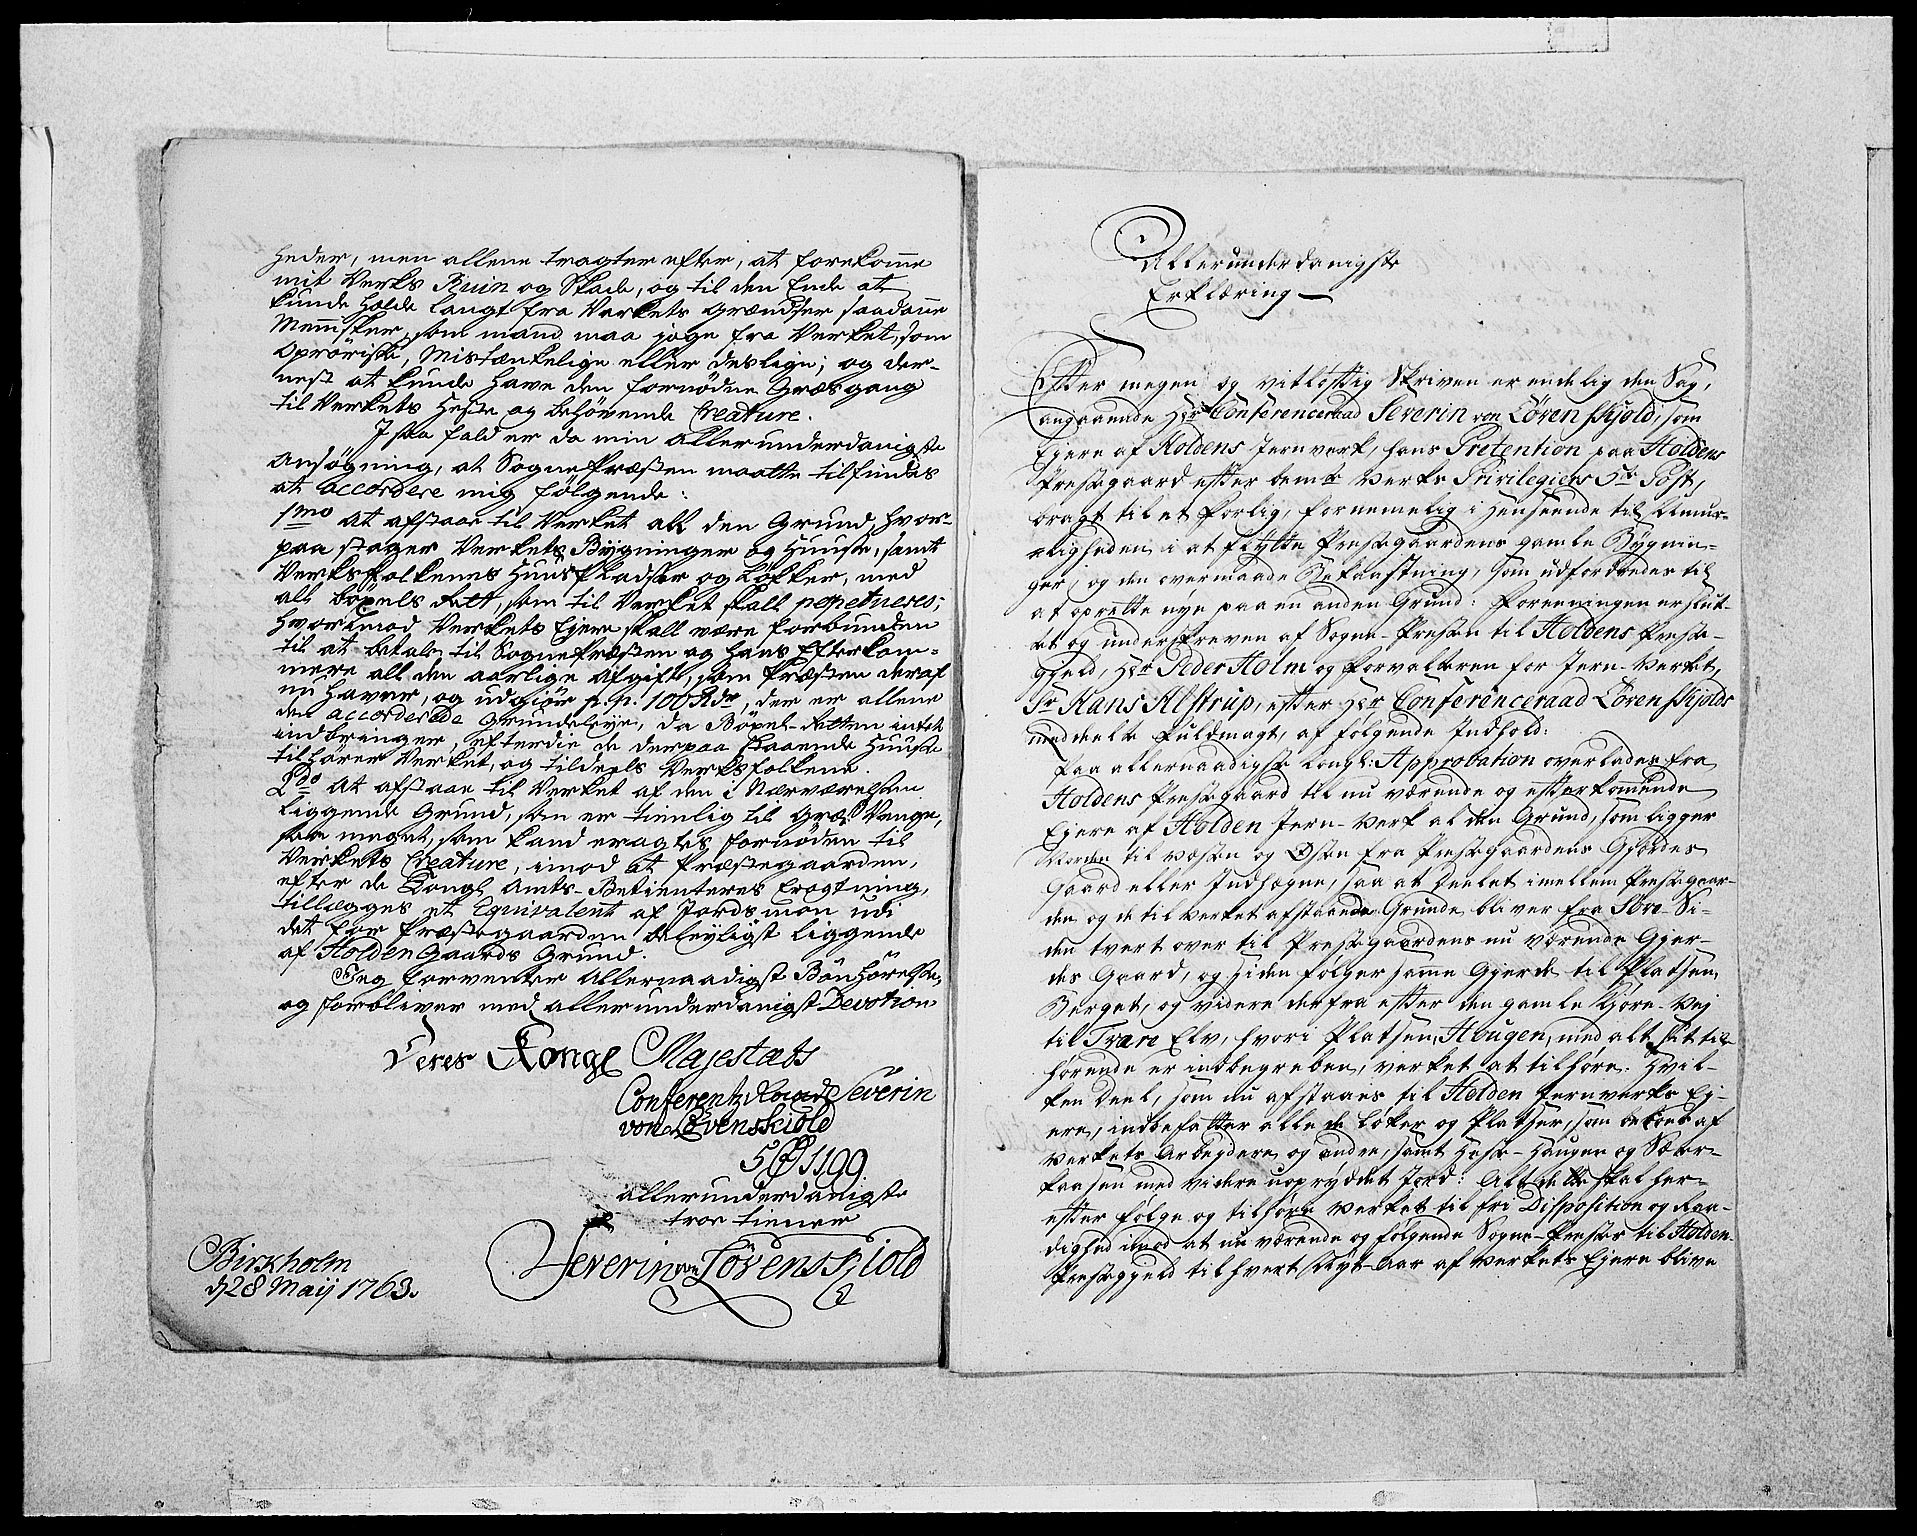 heder, men allene tragter efter, at forekomme
mit Verks Ruin og Skade, og til den Ende at
kunde holde langt fra Verkets Grændser saadanne
Mennisker, som mand maa jage fra Verket, som
oprøriske, Mistænkelige eller deslige; og der-
nest at kunde have den fornødne Græsgang
til Verkets Heste og behøvende Creature.
I saa fald er da min allerunderdanigste
Ansøgning, at Sognepræsten maatte tilfindes
at accordere mig følgende:
1mo at afstaae til Verket all den Grund, hvor-
paa staaer Verkets Bygninger og Huuse, samt
Verksfolkenes Huus Pladser og Løkker, med
all bøxels Rett, som til Verket skall perpetueres;
hvorimod Verkets Ejere skall være forbunden
til at betale til Sognepræsten og hans Efterkom-
mere all den aarlige Afgift, som Præsten deraf
nu haver, og udgiør p. p. 100 Rdr, der er allene
den accorderede Grundeleye, da Bøxel-Retten intet
indbringer, efterdie de derpaa staaende Huuse
tilhører Verket, og tildeels Verksfolkene.
2do At afstaae til Verket af den i Nærværelsen
liggende Grund, som er tienlig til Græs Venge,
saa meget, som kand eragtes fornøden til
Verkets Creature, imod at Præstegaarden,
efter de Kongl Amts-Betienteres Eragtning,
tillægges et Equivalent af Jordsmon udi
det for Præstegaarden beleyligst liggende
af Holden Gaards Grund.
Jeg forventer Allernaadigst Bønhørelse,
og forbliver med allerunderdanigst Devotion
Deres Kongl Majestæts
Conferentz Raad Severin
von Løvenskiold
allerunderdanigste
troe tiener
Severin von Løvenskiold
Birkholm
d 28 Maij 1763.
Allerunderdanigste
Erklæring
Efter megen og vitløftig Skriven er endelig den Sag,
angaaende Hr Conferenceraad Severin von Løvenskjold, som
Ejere af Holdens Jernverk, hans Pretention paa Holdens
Prestegaard efter bemte Verks Privilegiers 5te Post,
bragt til et Forlig, fornemelig i Henseende til Umue-
ligheden i at flytte Prestegaardens gamle Bygnin-
ger, og den overmaade Bekaastning, som udfordredes til
at oprette nye paa en anden Grund: Foreeningen er slut-
tet og underskreven af Sogne-Presten til Holdens Preste-
Gield, Hr Peder Holm og Forvalteren for Jern-Verket,
Sr Hans Alstrup, efter Hr Conferenceraad Løvenskjolds
meddeelte Fuldmagt, af følgende Indhold:
Paa allernaadigst Kongl: Approbation overlades fra
Holdens Prestegaard til nu værende og efterkommende
Ejere af Holden Jern-Verk al den Grund, som ligger
Norden til Vesten og Østen fra Prestegaardens Gjerdes
Gaard eller Indhegne, saa at deelet imellem Prestegaar-
den og de til Verket afstaaende Grunde bliver fra Søe-Si-
den tvert over til Prestegaardens nu værende Gjer-
des Gaard, og siden følger samme Gjerde til Platsen,
Berget, og videre derfra efter den gamle Kjøre-Vej
til Tvære Elv, hvori Platsen, Hougen, med alt sit til-
hørende er indbegreben, Verket at tilhøre. Hvil-
ken Deel, som nu afstaaes til Holden Jernverks Ej-
ere, indbefatter alle de Løker og Platser, som beboes af
Verkets Arbejdere og andre, samt Heste-Haugen og
med videre uopryddet Jord: Alt dette skal her-
efter følge og tilhøre Verket til fri Disposition og Raa-
dighed imod at nu værende og følgende Sogne-Prester til Holden
Prestegjeld til hvert Nyt-Aar af Verkets Ejere blive